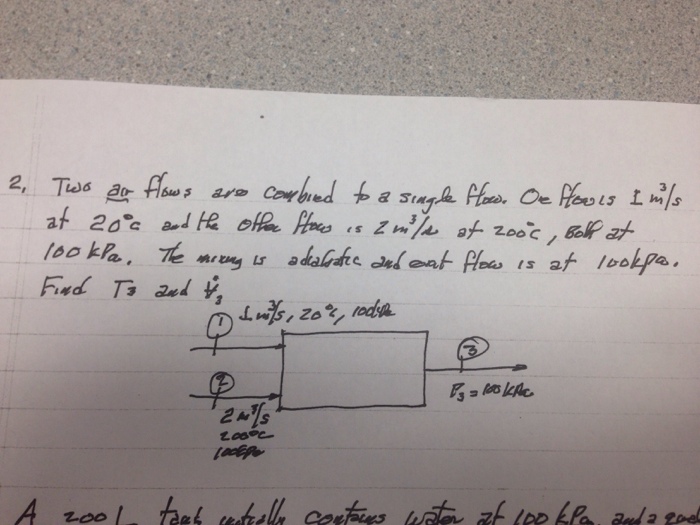 2, Two air flows are combined to a single flow. One flow is 1 m³/s
at 20°C and the other flow is 2 m³/s at 200°C, Both at
100 kPa. The mixing is adiabatic and exit flow is at 100kpa.
Find T3 and V̇3
1 1 m³/s, 20°C, 100kPa
3
2
P3 = 100 kPa
2 m³/s
200°C
100kPa
A 200 L tank initially contains water at 100 kPa and a